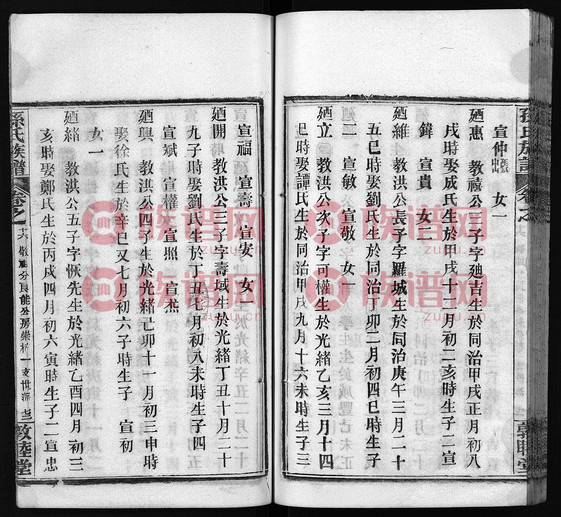 孫氏族譜
宣仲出嗣 女一
廼惠 教禧公之子字廸吉生於同治甲戌正月初八
戌時娶成氏生於甲戌十月初二亥時生子二宣
鋒 宣貴 女二
廼維 教洪公長子字羅城生於同治庚午三月二十
五巳時娶劉氏生於同治丁卯二月初四巳時生子
二 宣敏 宣敬 女一
廼立 教洪公次子字可權生於光緒乙亥三月十四
巳時娶譚氏生於同治甲戌九月十六未時生子三
宣福 宣壽 宣安 女一
廼開 教洪公三子字壽域生於光緒丁丑十月二十
九子時娶劉氏生於丁丑七月初八未時生子四
宣斌 宣權 宣照 宣杰
廼興 教洪公四子生於光緒己卯十一月初三申時
娶徐氏生於辛巳又七月初六子時生子一 宣初
女一
廼緒 教洪公五子字恢先生於光緒乙酉四月初三
亥時娶鄭氏生於丙戌四月初六寅時生子二宣忠
孫氏族譜
敦睦堂
族谱网
zupu.cn
族谱网
zupu.cn
族谱网
zupu.cn
族谱网
zupu.cn